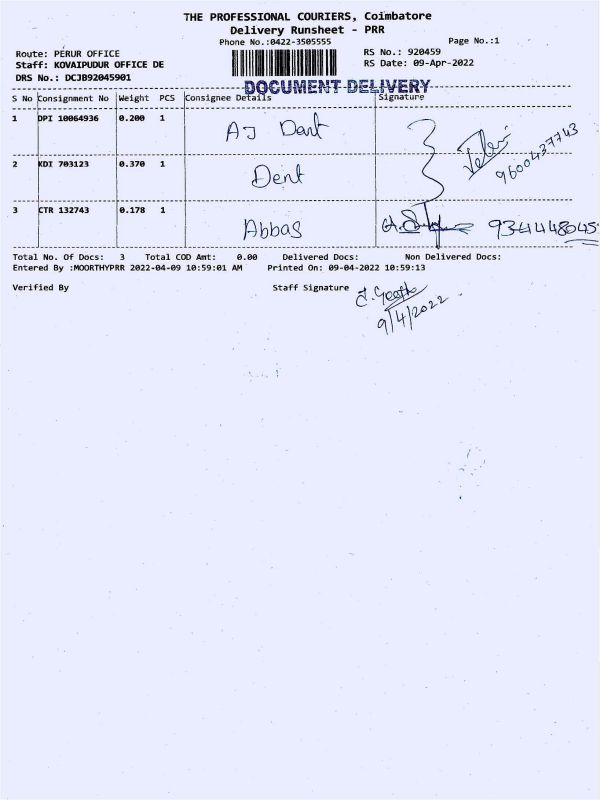 THE PROFESSIONAL COURIERS, Coimbatore
Delivery Runsheet - PRR
Phone No.:0422-3505555
Page No.:1
Route: PERUR OFFICE
RS No.: 920459
Staff: KOVAIPUDUR OFFICE DE
RS Date: 09-Apr-2022
DRS No.: DCJB92045901
DOCUMENT DELIVERY
S No Consignment No Weight PCS Consignee Details Signature
1 DPI 10064936 0.200 1 AJ Dant
9600437743
2 KDI 703123 0.370 1 Dent
3 CTR 132743 0.178 1 Abbas 9344448045
Total No. Of Docs: 3 Total COD Amt: 0.00 Delivered Docs: Non Delivered Docs:
Entered By :MOORTHYPRR 2022-04-09 10:59:01 AM Printed On: 09-04-2022 10:59:13
Verified By Staff Signature
9/4/2022